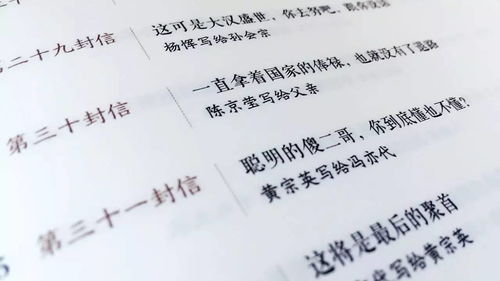 第二十九封信
这可是大汉盛世，你去务吧，跟你没
杨恽写给孙会宗
第三十封信
一直拿着国家的俸禄，也就没有了退路
陈京莹写给父亲
第三十一封信
聪明的傻二哥，你到底懂也不懂？
黄宗英写给冯亦代
这将是最后的聚首
亦代写给黄宗英